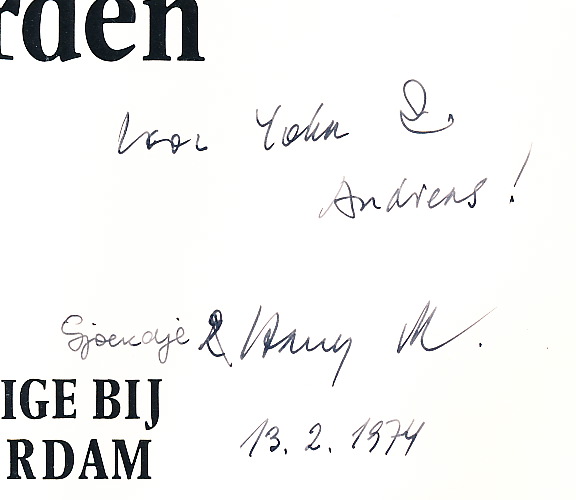 rden
Voor John &
Andreas!
Sjoerdje & Harry M.
IGE BIJ
RDAM
13.2.1974